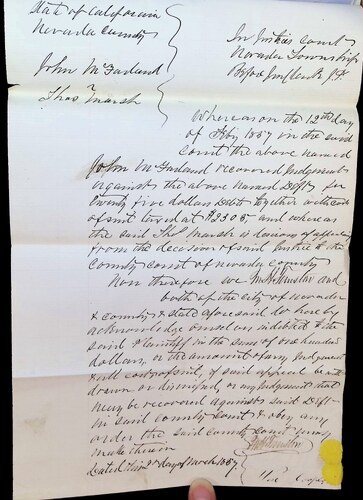 State of California
Nevada County
In Justice Court
Nevada Township
John McFarland
Before
Thos Marsh
Whereas on the 12th day
of Feby 1857 in the said
court the above named
John McFarland recovered Judgement
against the above named Deft for
Twenty five dollars Debt together with costs
of suit taxed at $23.05 and whereas
the said Thos Marsh is desirous of appealing
from the decision of said Justice to the
county court of nevada county
Now therefore we and
both of the city of nevada
& county & state aforesaid do hereby
acknowledge ourselves indebted to the
said Plaintiff in the sum of one hundred
dollars, or the amount of any Judgement
& all costs of suit, if said appeal be with
drawn or dismissed, or any Judgement that
may be recovered against said Deft
in said county court & obey any
order the said county court may
make therein
Dated this 2nd day of March 1857